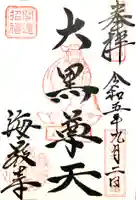 奉拝
令和五年九月二日
大黒尊天
開運
招福